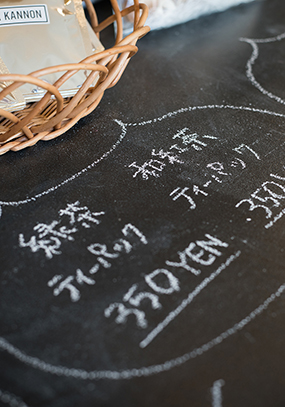 KANNON
和紅茶
ティーパック
350
緑茶
ティーパック
350YEN